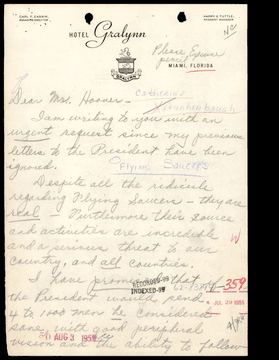 CARL F. CASKIN,
MANAGING DIRECTOR
HARRY N. TUTTLE,
RESIDENT MANAGER
HOTEL Gralynn
NC
Please Excuse
pencil
GRALYNN
MIAMI, FLORIDA
Dear Mr. Hoover-
Catherine
I am writing to you with an
urgent request since my previous
letters to the President have been
ignored.
Flying Saucers
Despite all the ridicule
regarding Flying Saucers - they are
real - Furthermore their source
and activities are incredible
and a serious threat to our
country, and all countries.
W
I have that
RECORDED-
INDEXED-
359
the President would send
JUL 29 1952
4 to 1000 men he considered
AUG 3 1952
sane, with good peripheral
vision and the ability to follow